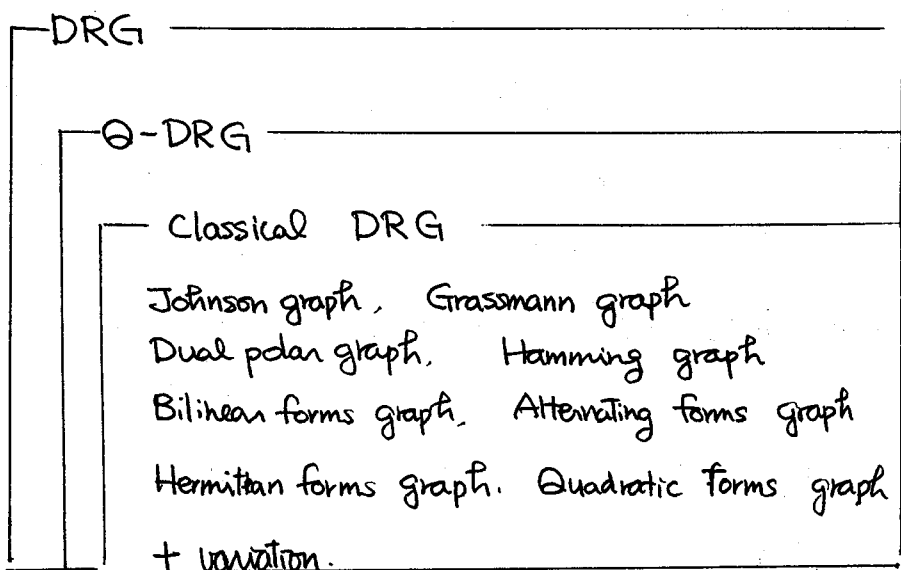 DRG
Q-DRG
Classical DRG
Johnson graph, Grassmann graph
Dual polar graph, Hamming graph
Bilinear forms graph, Alternating forms graph
Hermitian forms graph. Quadratic forms graph
+ variation.